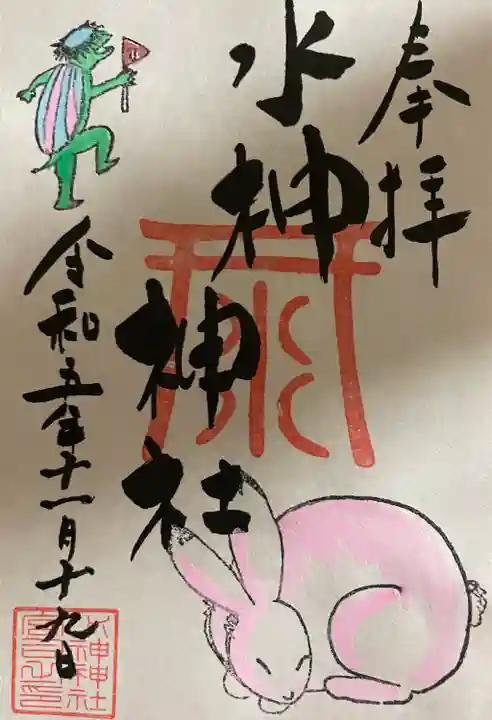 奉拝
水神
神社
令和五年十一月十九日
水
水神神社
宮司之印